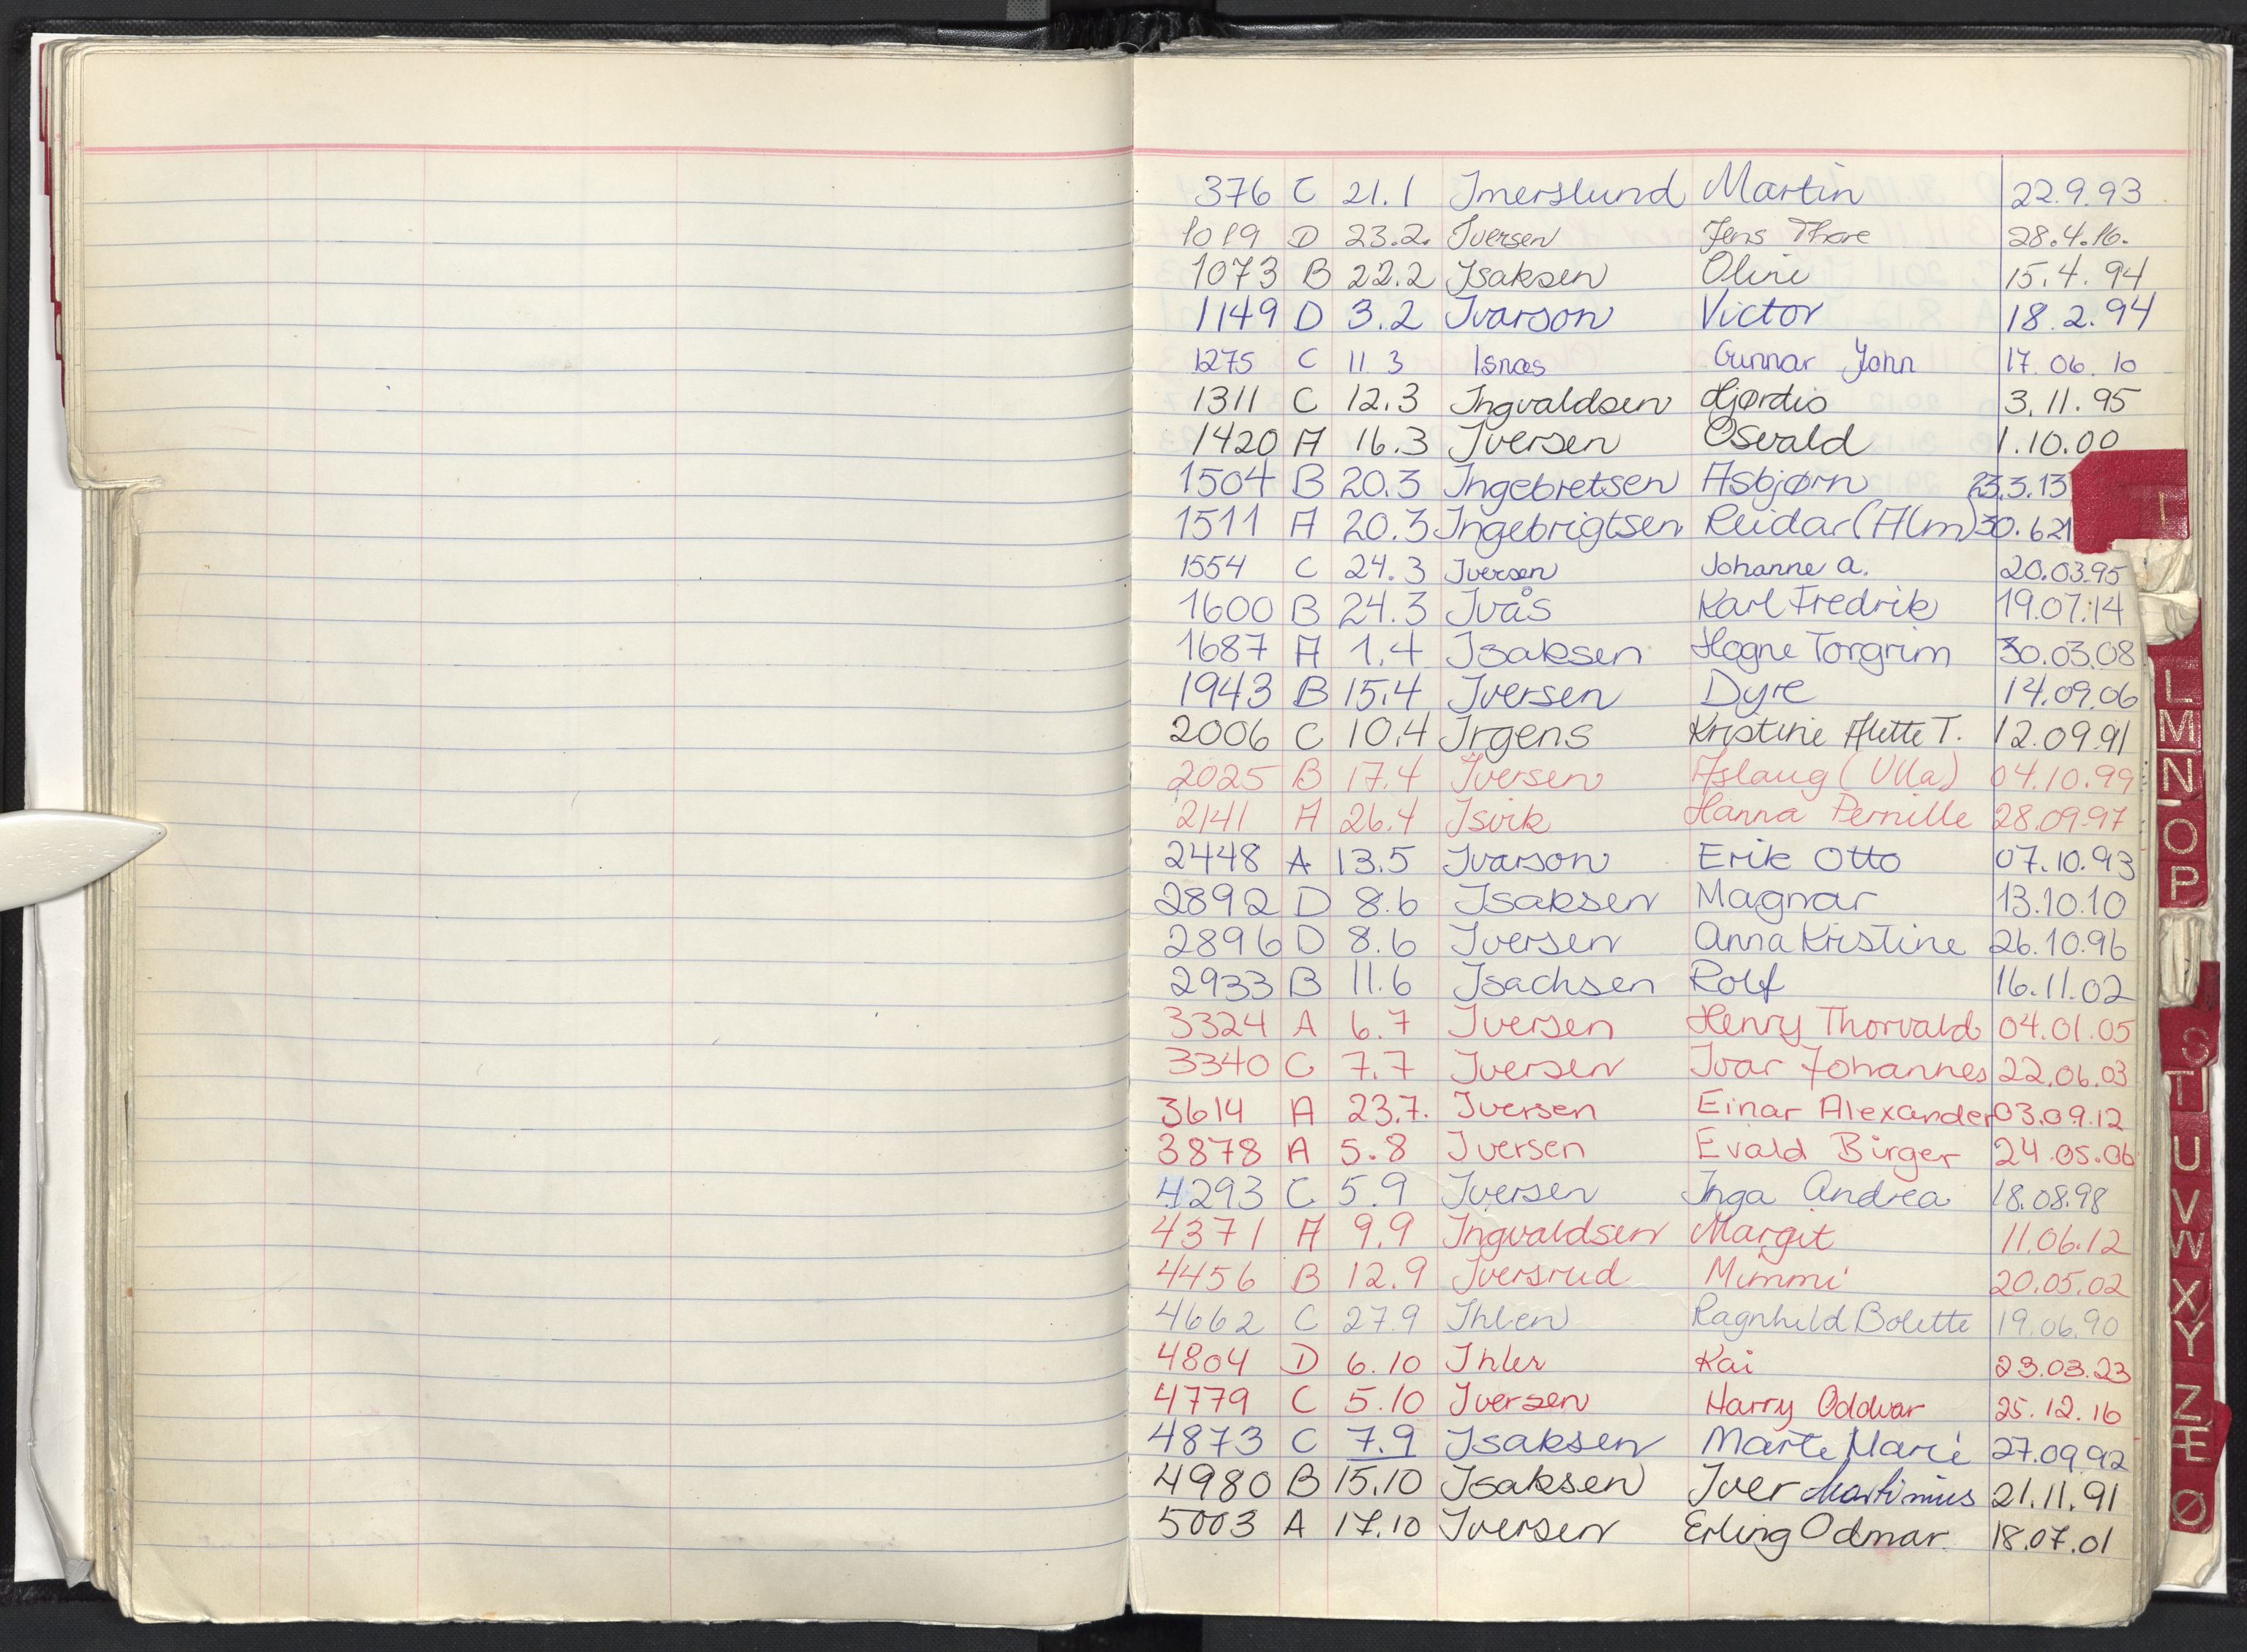 376 C 21.1 Imerslund Martin 22.9.93
1019 D 23.2. Iversen Jens Thore 28.4.16.
1073 B 22.2 Isaksen Oline 15.4.94
1149 D 3.2 Ivarson Victor 18.2.94
1275 C 11 3 Isnæs Gunnar John 17.06.10
1311 C 12.3 Ingvaldsen Hjørdis 3.11.95
1420 A 16.3 Iversen Osvald 1.10.00
1504 B 20.3 Ingebretsen Asbjørn 23.3.13
1511 A 20.3 Ingebrigtsen Reidar (Alm) 30.6.21
I
1554 C 24.3 Iversen Johanne A. 20.03.95
1600 B 24.3 Ivås Karl Fredrik 19.07.14
1687 A 1.4 Isaksen Hogne Torgrim 30.03.08
1943 B 15.4 Iversen Dyre 14.09.06
L
2006 C 10.4 Irgens Kristine Alette T. 12.09.91
M
2025 B 17.4 Iversen Aslaug (Ulla) 04.10.99
N
2141 A 26.4 Isvik Hanna Pernille 28.09.97
O
2448 A 13.5 Ivarson Erik Otto 07.10.93
P
2892 D 8.6 Isaksen Magnar 13.10.10
2896 D 8.6 Iversen Anna Kristine 26.10.96
2933 B 11.6 Isachsen Rolf 16.11.02
3324 A 6.7 Iversen Henry Thorvald 04.01.05
S
3340 C 7.7 Iversen Ivar Johannes 22.06.03
T
3614 A 23.7. Iversen Einar Alexander 03.09.12
3878 A 5.8 Iversen Evald Birger 24.05.06
U
4293 C 5.9 Iversen Inga Andrea 18.08.98
V
4371 A 9.9 Ingvaldsen Margit 11.06.12
W
4456 B 12.9 Iversrud Mimmi 20.05.02
X
4662 C 27.9 Ihlen Ragnhild Bolette 19.06.90
Y
4804 D 6.10 Ihler Kai 23.03.23
4779 C 5.10 Iversen Harry Oddvar 25.12.16
Z
4873 C 7.9 Isaksen Marte Marie 27.09.92
Æ
4980 B 15.10 Isaksen Iver Martinius 21.11.91
Ø
5003 A 17.10 Iversen Erling Odmar 18.07.01